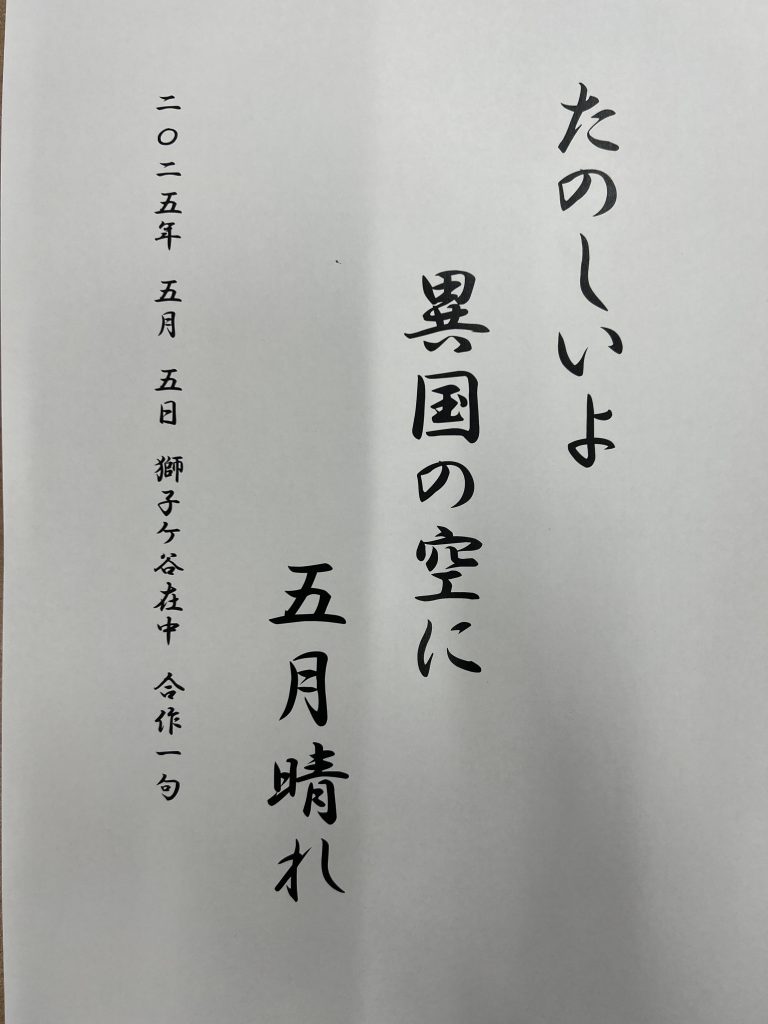 たのしいよ
異国の空に
五月晴れ
二〇二五年 五月 五日 獅子ケ谷在中 合作一句